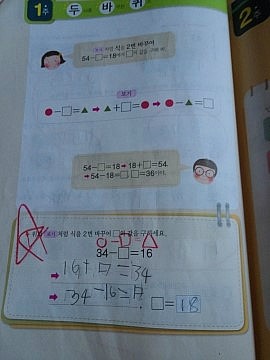 1주
두 바 퀴
2주
보기 처럼 식을 2번 바꾸어
54-□=18에서 □의 값을 구해 봐.
보기
●-□=▲ ➡ ▲+□=● ➡ ●-▲=□
54-□=18 ➡ 18+□=54
➡ 54-18=□, □=36이지.
보기 처럼 식을 2번 바꾸어 □의 값을 구하세요.
○-□=△
34-□=16
➡ 16+□=34
➡ 34-16=□
□=18